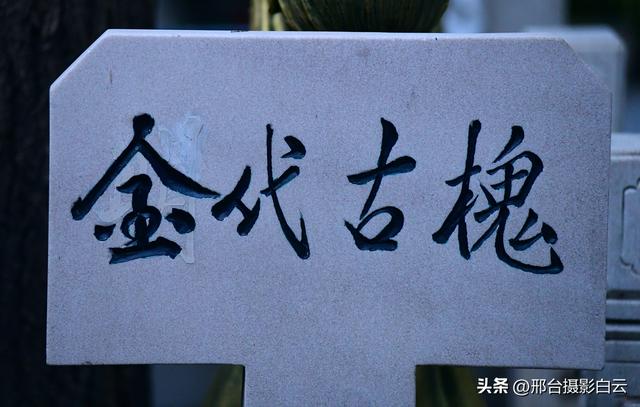 金代古槐
头条 @邢台摄影白云